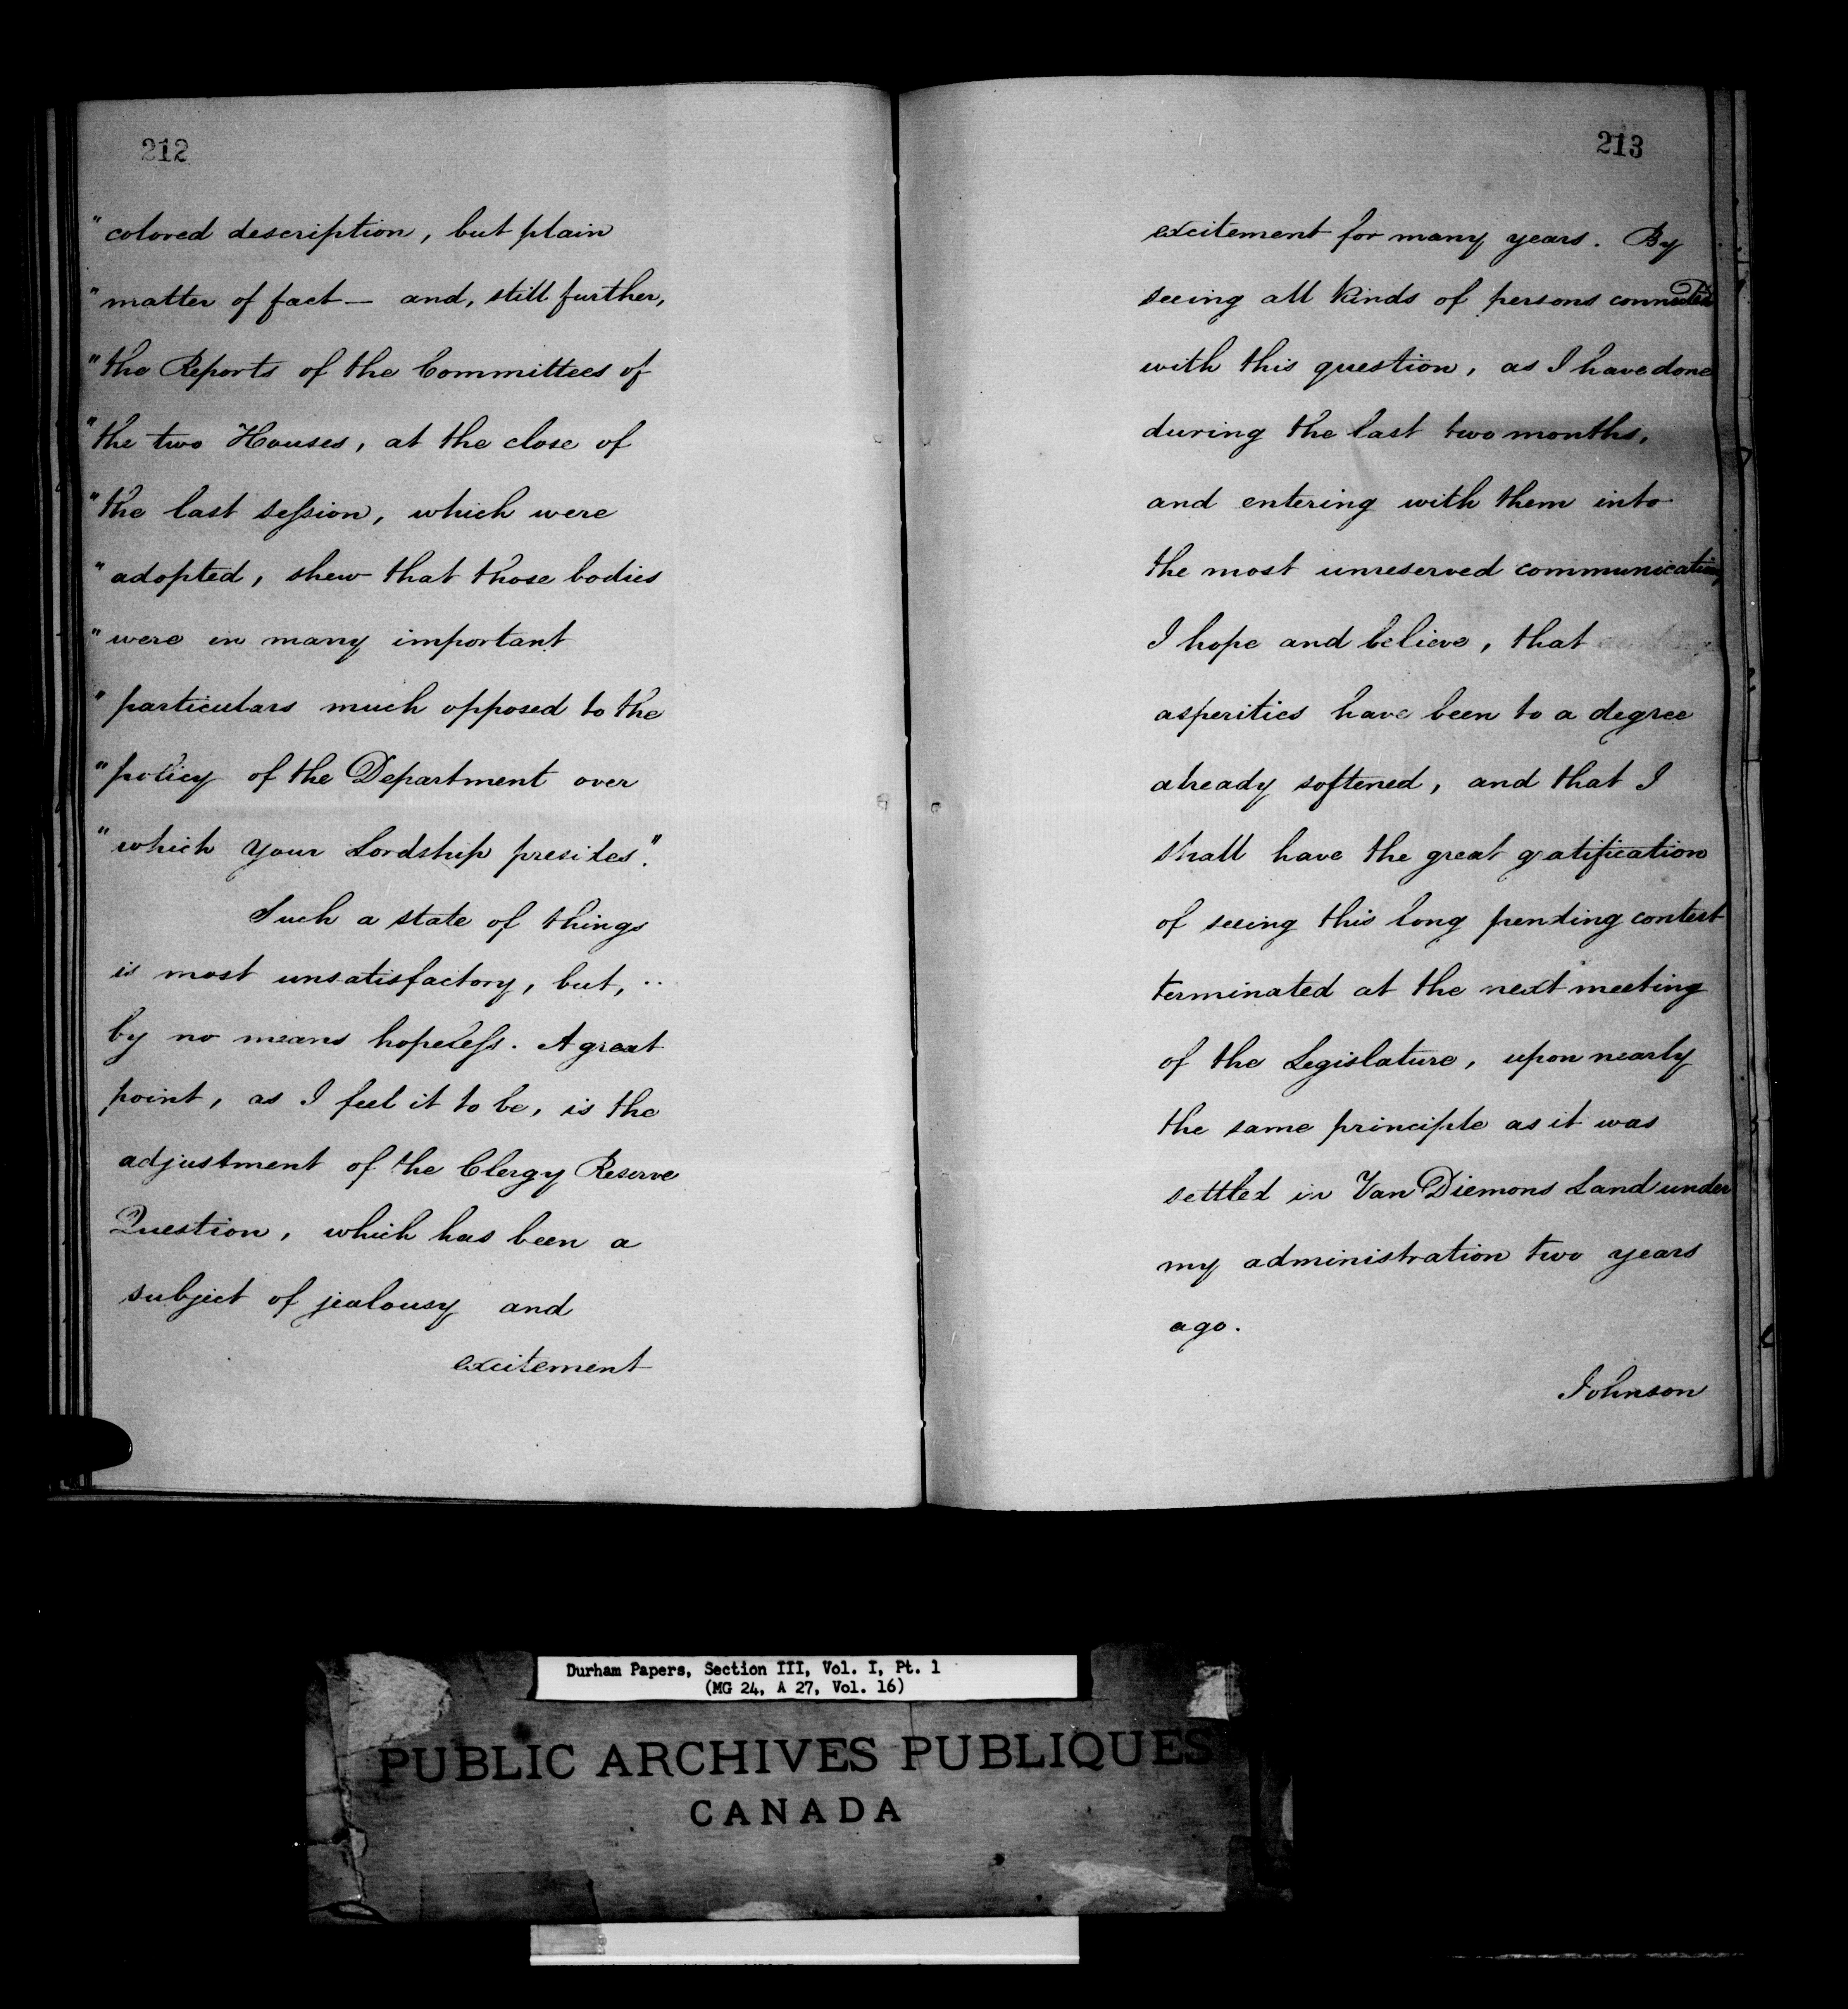 212
"colored description, but plain
"matter of fact — and, still further,
"the Reports of the Committees of
"the two Houses, at the close of
"the last session, which were
"adopted, shew that those bodies
"were in many important
"particulars much opposed to the
"policy of the Department over
"which your Lordship presides".
Such a state of things
is most unsatisfactory, but, ..
by no means hopeless. A great
point, as I feel it to be, is the
adjustment of the Clergy Reserve
Question, which has been a
subject of jealousy and
excitement
213
excitement for many years. By
seeing all kinds of persons connected
with this question, as I have done
during the last two months,
and entering with them into
the most unreserved communication,
I hope and believe, that
asperities have been to a degree
already softened, and that I
shall have the great gratification
of seeing this long pending contest
terminated at the next meeting
of the Legislature, upon nearly
the same principle as it was
settled in Van Diemons Land under
my administration two years
ago.
Johnson
Durham Papers, Section III, Vol. I, Pt. 1
(MG 24, A 27, Vol. 16)
PUBLIC ARCHIVES PUBLIQUES
CANADA